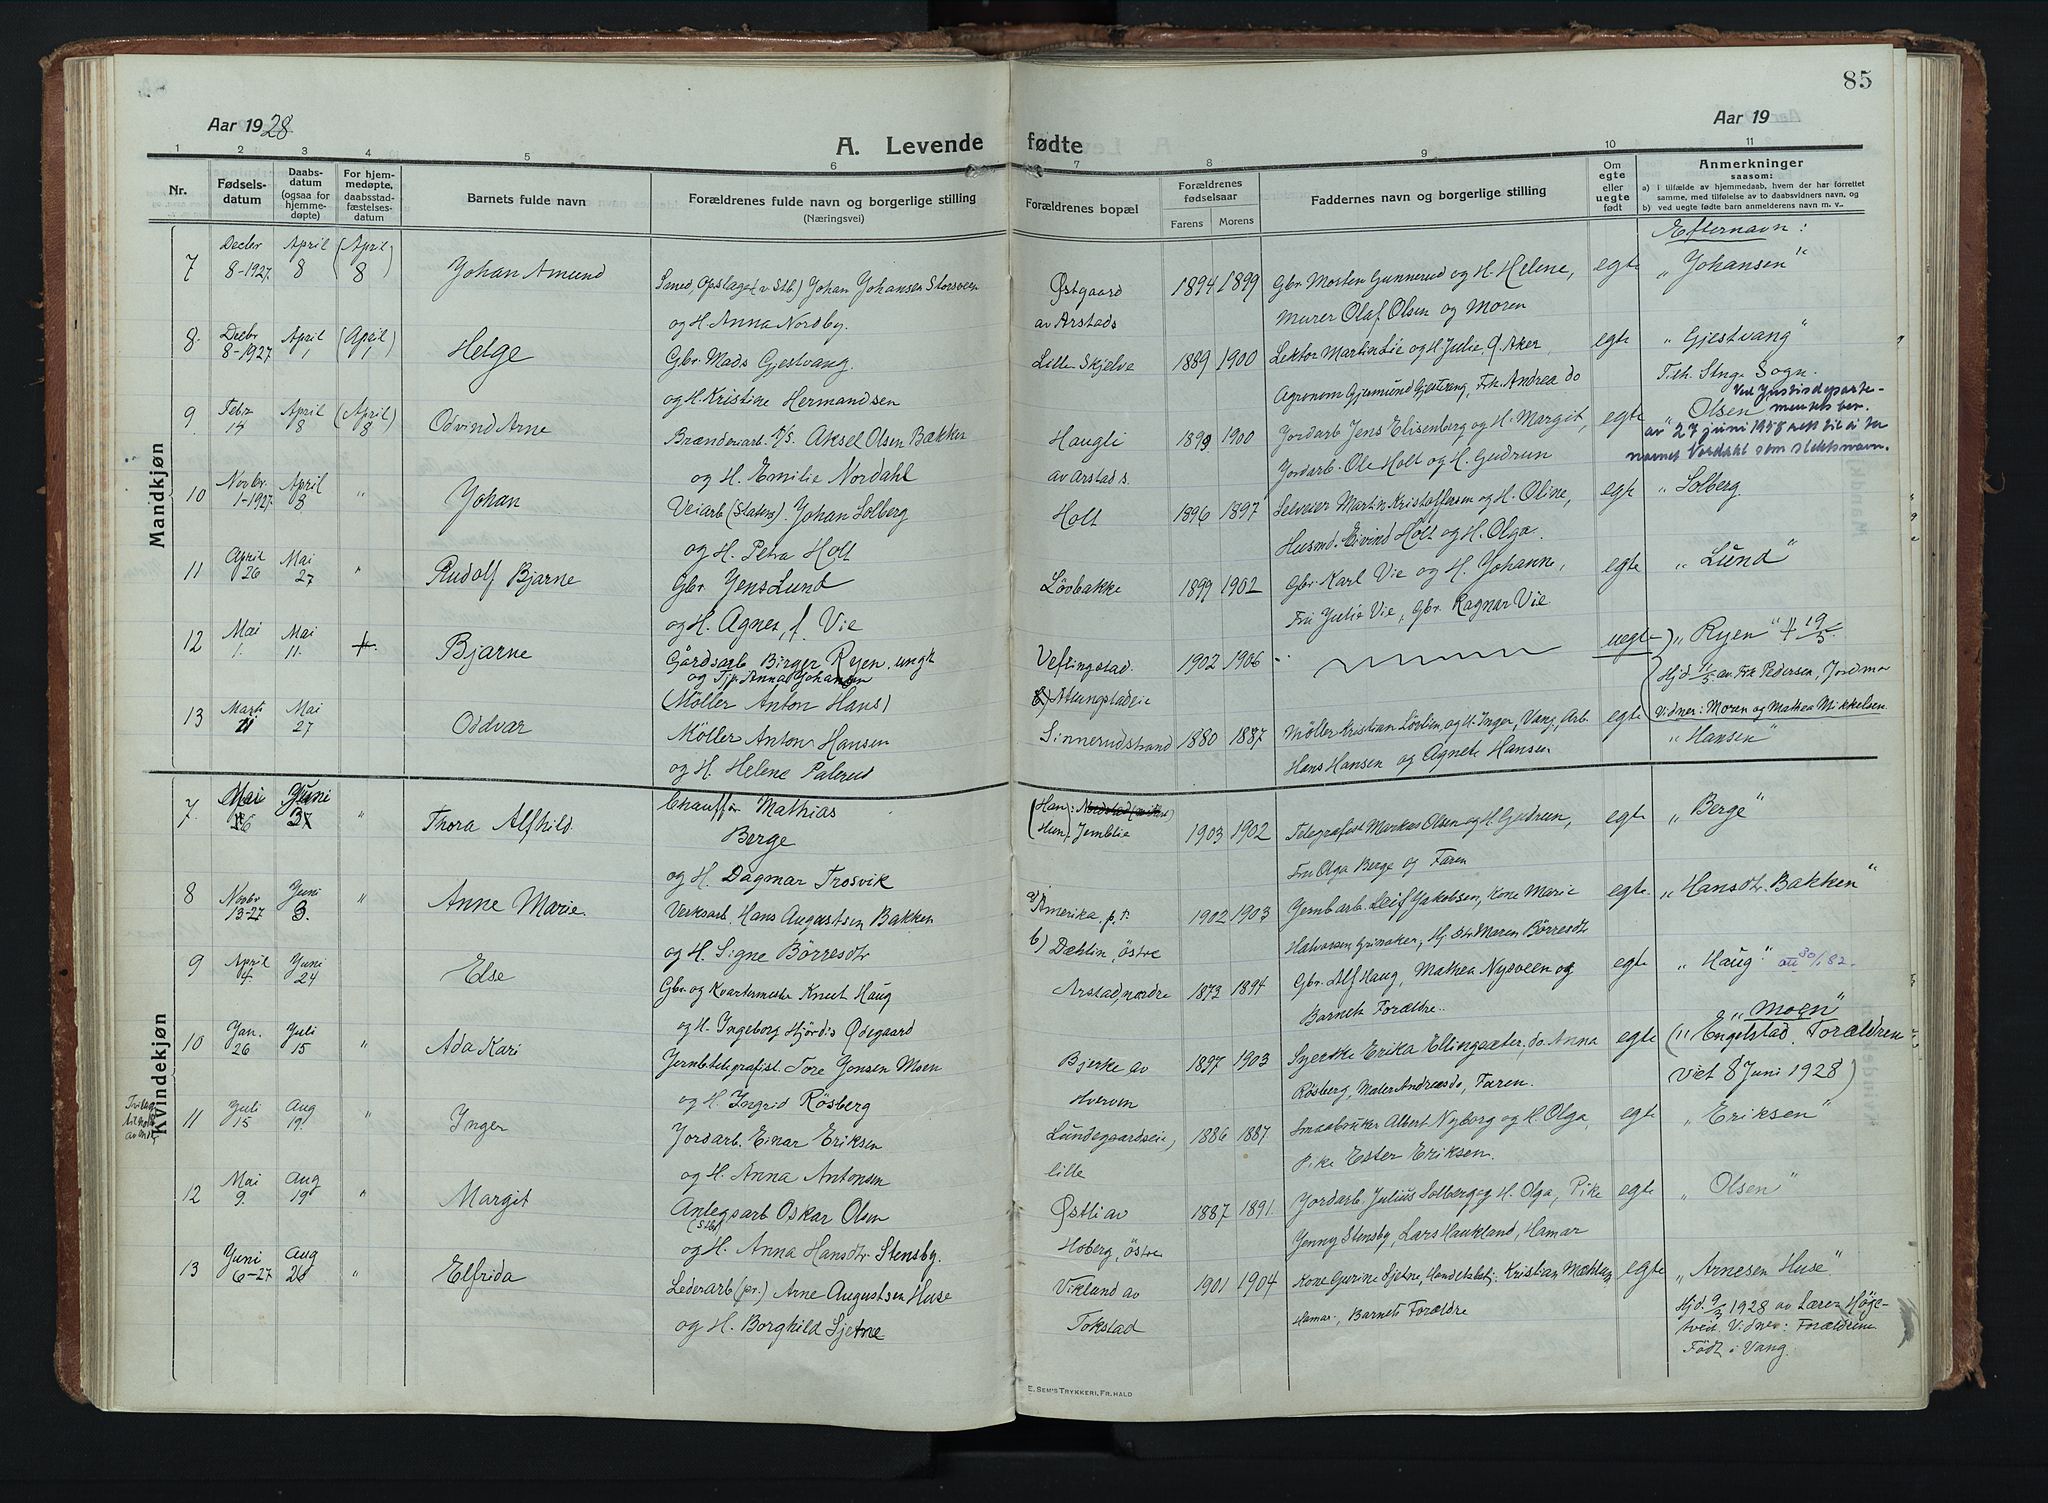 85
Aar 1928
Aar 19
A. Levende fødte
1 2 3 4 5 6 7 8 9 10 11
Nr.
Fødsels-
datum
Daabs-
datum
(ogsaa for
hjemme-
døpte)
For hjem-
medøpte,
daabsstad-
fæstelses-
datum
Barnets fulde navn
Forældrenes fulde navn og borgerlige stilling
(Næringsvei)
Forældrenes bopæl
Forældrenes
fødselsaar
Farens Morens
Faddernes navn og borgerlige stilling
Om
egte
eller
uegte
født
Anmerkninger
saasom:
a) I tilfælde av hjemmedaab, hvem der har forrettet
samme, med tilføielse av to daabsvidners navn, og
b) ved uegte fødte barn anmelderens navn m. v..
Mandkjøn
Efternavn:
7 Decbr 8-1927. April 8 (April 8) Johan Amund
Smed, Opslaget (v Stb.) Johan Johansen Storsveen
og H. Anna Nordby.
Østgaard
av Arstads
1894 1899
Gbr. Morten Gunnerud og H. Helene,
Murer Olaf Olsen og Moren
egte "Johansen"
8. Decbr 8-1927 April 1 (April 1) Helge
Gbr. Mads Gjestvang.
og H. Kristine Hermandsen
Lille Skjelve
1889 1900
Lektor Martin Lie og H. Julie, Ø. Aker,
Agronom Gjermund Gjestvang, Frk. Andrea do
egte "Gjestvang"
Tilh. Stange Sogn.
9 Febr. 14 April 8 (April 8) Odvind Arne
Brænderiarb. Aksel Olsen Bækken
og H. Emilie Nordahl
Haugli
av Arstads.
1899 1900
Jordarb Jens Elisenberg og H. Margit,
Jordarb. Ole Holt og H. Gudrun
egte "Olsen"
Ved Justisdeparte-
mentets bev.
av 27 juni 1958 rett til å ta
navnet Nordahl som slektsnavn.
10 Novbr. 1-1927. April 8 " Johan
Veiarb (Statens). Johan Solberg
og H. Petra Holt
Holt
1896 1897
Selveier Martin Kristoffersen og H. Oline,
Husmd. Eivind Holt og H. Olga.
egte "Solberg
11 April 26 Mai 27 " Rudolf Bjarne
Gbr. Jens Lund
og H. Agnes, f. Vie
Løvbakke
1899 1902
Gbr. Karl Vie og H. Johanne,
Fru Julie Vie, Gbr. Ragnar Vie.
egte "Lund"
12 Mai 1. Mai 11. + Bjarne
Gårdsarb Birger Ryen, ungk
og Tjp. Anna Johansen
Veflingstad.
1902 1906
uegte "Ryen" + 19/5.
Hjd. 11/5 av Frk Pedersen, Jordmor
Vidner: Moren og Mathea Mikkelsen.
13 Marts 11 Mai 27 Oddvar
(Møller Anton Hans)
Møller Anton Hansen
og H. Helene Palerud
Sinnerudstrand
1880 1887
Møller Kristian Løvlien og H. Inger, Vang, Arb.
Hans Hansen og Agnete Hansen
egte "Hansen"
Kvindekjøn
7 Mai 16 Juni 3 " Thora Alfhild
Chauffør Mathias
Berge
og H. Dagmar Trosvik
(Han:
Hun) Jemblie
1903 1902
Telegrafest Markus Olsen og H. Gudrun,
Fru Olga Berge og Faren
egte "Berge"
8 Novbr 13-27 Juni 3. " Anne Marie.
Verksarb. Hans Augustsen Bakken
og H. Signe Børresdtr
a) Amerika. p.t.
b) Dæhlin, østre
1902 1903
Jernbarb. Leif Jakobsen, Kone Marie
Halvorsen Grinaker, Hj. dtr Maren Børresdtr
egte. "Hansdtr. Bakken"
9 April 4. Juni 24 Else
Gbr og Kvartermester Knut Haug
og H. Ingeborg Hjørdis Ødegaard
Arstad, nordre
1873 1894
Gbr. Alf Haug, Mathea Nysveen og
Barnets Forældre.
egte "Haug" 30/1 82.
10 Jan. 26 Juli 15 " Ada Kari
Jernbtelegrafist. Tore Jonsen Moen
og H. Ingrid Røsberg
Bjerke av
Hverven
1897 1903
Syerske Erika Ellingsæter, do. Anna
Røsberg, Maler Andreas do, Faren.
egte "Moen"
("Engelstad. Forældren
viet 8 Juni 1928)
11 Juli 15 Aug 19. " Inger
Jordarb. Einar Eriksen
og H. Anna Antonsen
Lundegaardseie,
lille
1886 1887
Smaabruker Albert Nyborg og H. Olga,
Pike Ester Eriksen.
egte "Eriksen"
12 Mai 9. Aug 19 " Margit
Anlegsarb Oskar Olsen
(Stb)
og H. Anna Hansdtr. Stensby.
Østli av
Hoberg, østre
1887 1891.
Jordarb. Julius Solberg og H. Olga, Pike
Jenny Stensby, Lars Haukland, Hamar
egte "Olsen"
13 Juni 6-27 Aug 26 " Elfrida
Lederarb (pr.) Arne Augustsen Huse
og H. Borghild Sjetne
Viklund av
Tokstad
1901 1904
Kone Gurine Sjetne, Handelsbetj. Kristian Mæhlum
Hamar, Barnets Forældre
egte "Arnesen Huse"
Hjd. 9/3 1928 av Lærer Høge-
tveit. Vidner: Forældrene
Født i Vang.
E. SEM'S TRYKKERI, FR.HALD